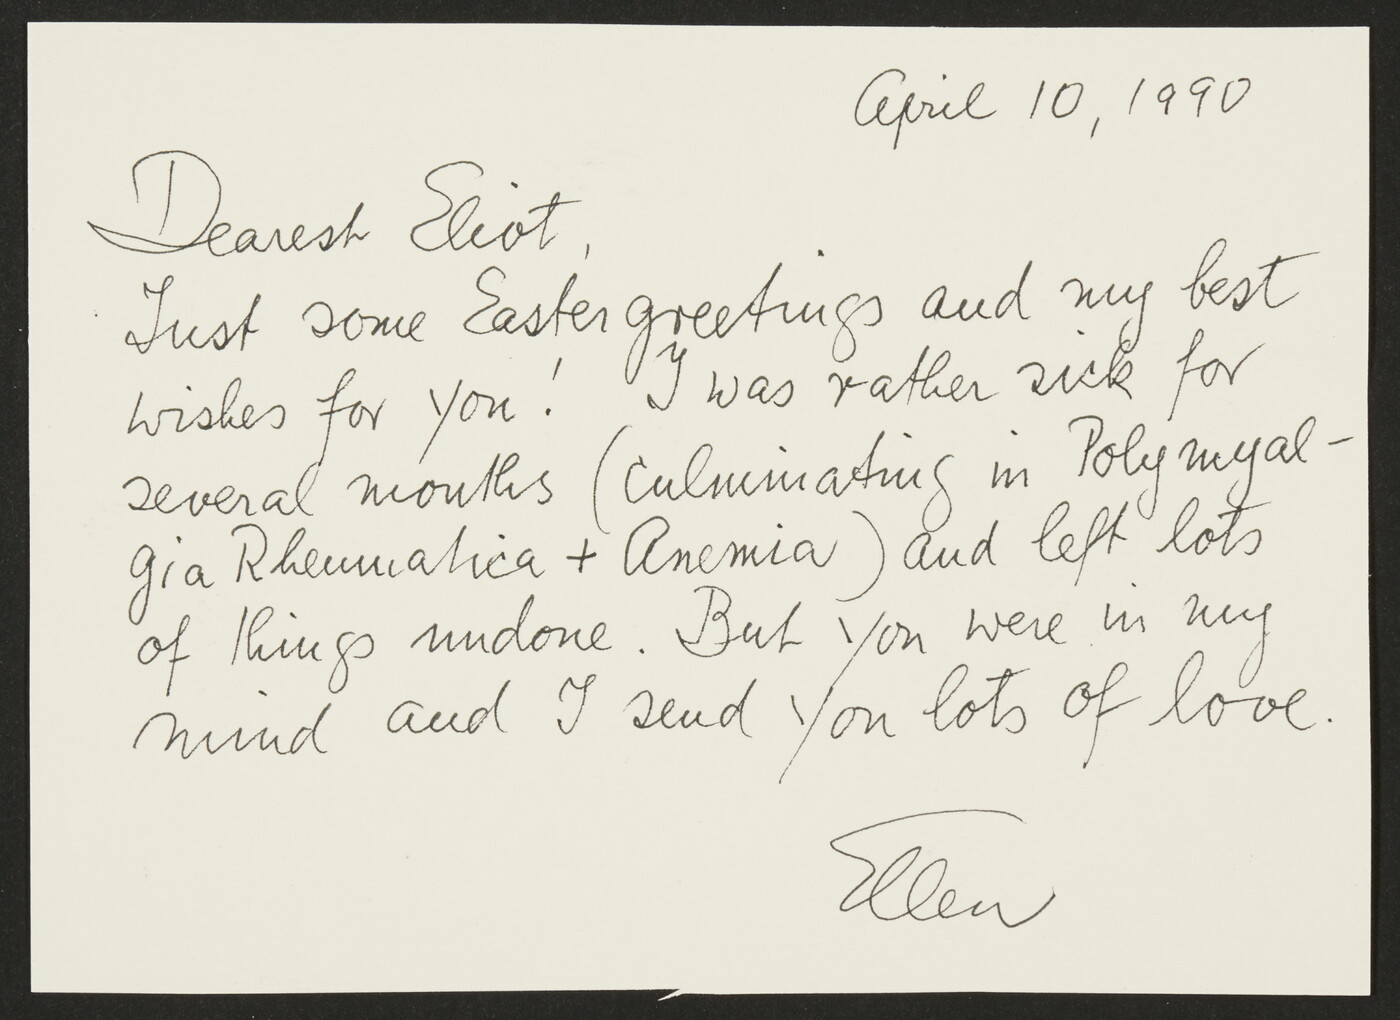 April 10, 1990
Dearest Eliot,
Just some Easter greetings and my best
wishes for you! I was rather sick for
several months (culminating in Polymyal-
gia Rheumatica + Anemia) and left lots
of things undone. But you were in my
mind and I send you lots of love.
Ellen